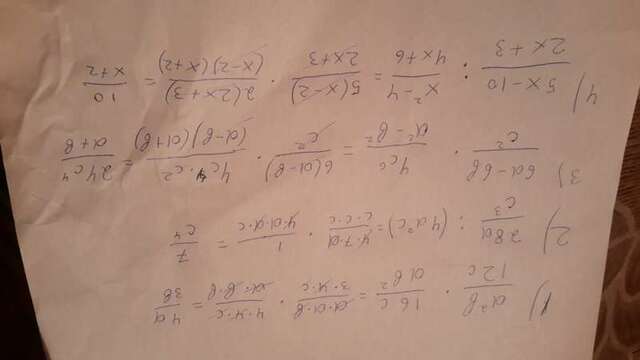 1) a²b/12c · 16c/ab² = a·a·b/3·4·c · 4·4·c/a·b·b = 4a/3b
2) 28a/c³ : (4a²c) = 4·7·a/c·c·c · 1/4·a·a·c = 7/c⁴
3) 6a-6b/c² · 4c⁶/a²-b² = 6(a-b)/c² · 4c⁴·c²/(a-b)(a+b) = 24c⁴/a+b
4) 5x-10/2x+3 : x²-4/4x+6 = 5(x-2)/2x+3 · 2(2x+3)/(x-2)(x+2) = 10/x+2